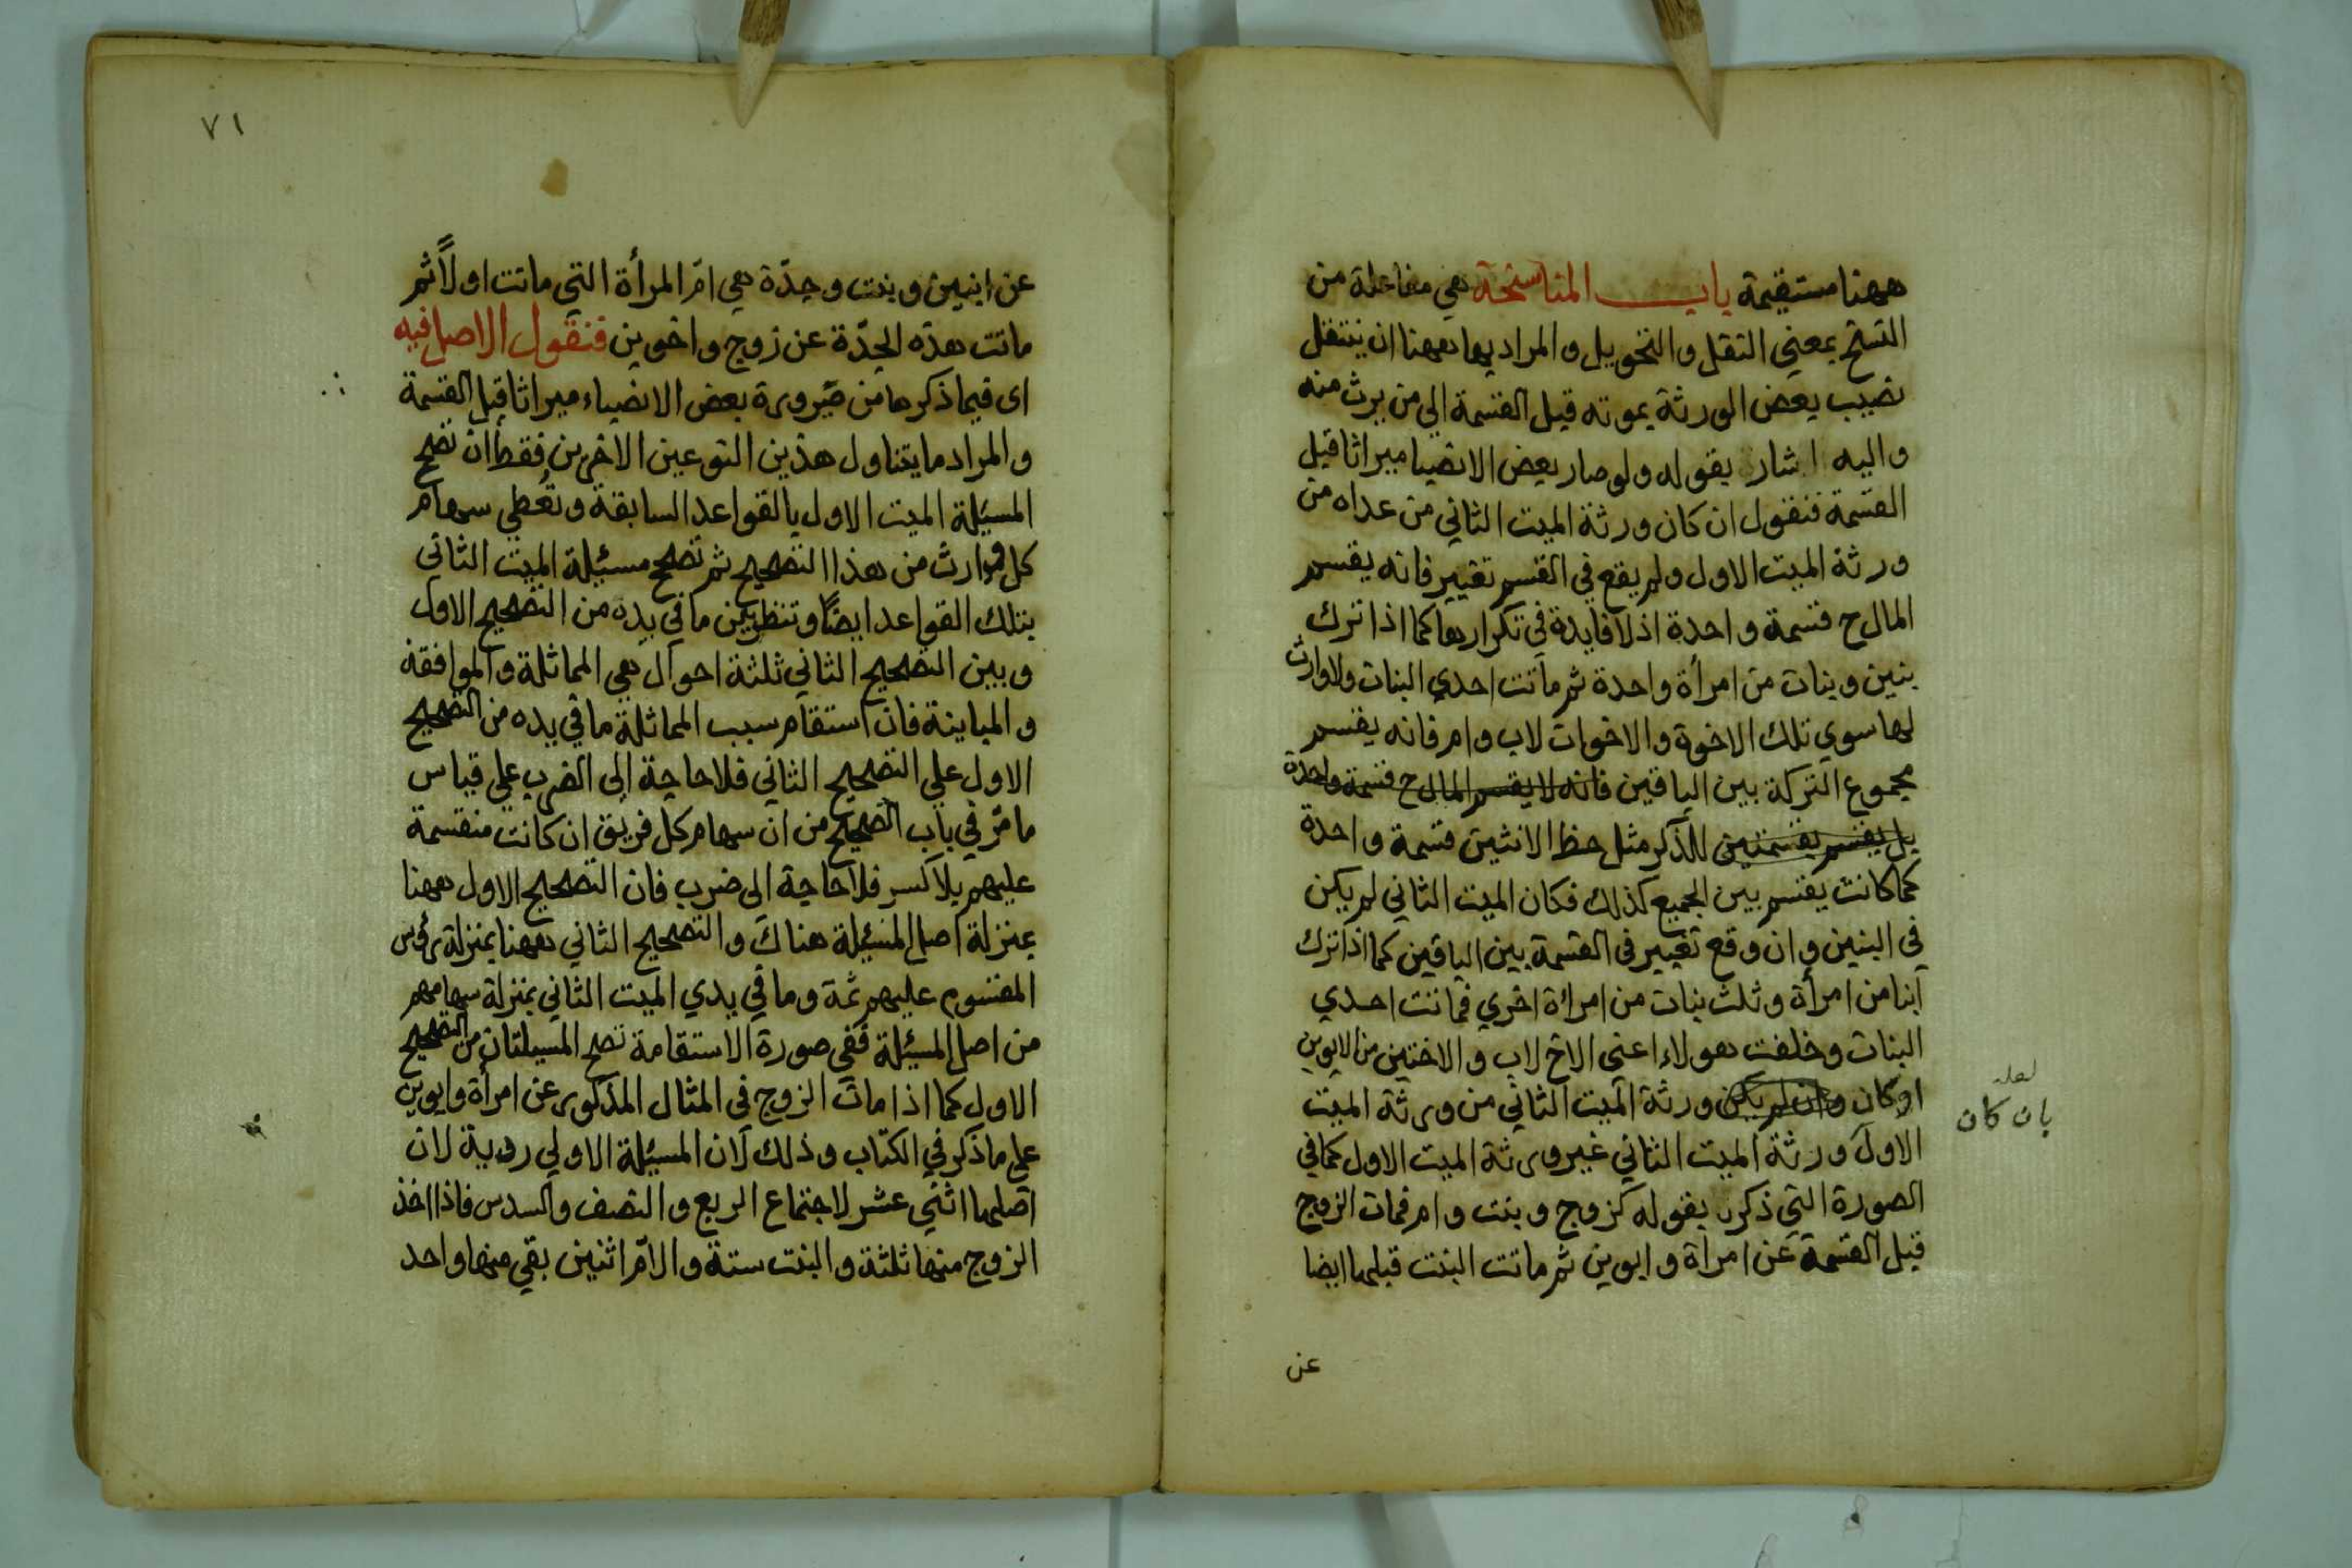 ههنا مستقيمة باب المناسخة هي مفاعلة من
النسخ بمعني النقل والتحويل والمراد بها ههنا ان ينتقل
نصيب بعض الورثة بموته قبل القسمة الي من يرث منه
واليه اشار بقوله ولو صار بعض الانصبا ميراثا قبل
القسمة فنقول ان كان ورثة الميت الثاني من عداه من
ورثة الميت الاول ولم يقع في القسم تغيير فانه يقسم
المال ح قسمة واحدة اذ لا فايدة في تكرارها كما اذا ترك
بنين وبنات من امرأة واحدة ثم ماتت احدي البنات ولا وارث
لها سوي تلك الاخوة والاخوات لاب وام فانه يقسم
مجموع التركة بين الباقين فانه لا يقسم المال ح قسمة واحدة
بل يقسم بقسمتين للذكر مثل حظ الانثيين قسمة واحدة
كما كانت يقسم بين الجميع كذلك فكان الميت الثاني لم يكن
في البنين وان وقع تغيير في القسمة بين الباقين كما اذا ترك
ابنا من امرأة وثلث بنات من امراة اخري فماتت احدي
البنات وخلفت هولاء اعني الاخ لاب والاختين من الابوين
او كان وان لم يكن ورثة الميت الثاني من ورثة الميت
لعله
بان كان
الاول ورثة الميت الثاني غير ورثة الميت الاول كما في
الصورة التي ذكر بقوله كزوج وبنت وام فمات الزوج
قبل القسمة عن امراة وابوين ثم ماتت البنت قبلها ايضا
عن
٧١
عن ابنين وبنت وجدّة هي امّ المرأة التي ماتت اولاً ثم
ماتت هذه الجدّة عن زوج واخوين فنقول الاصل فيه
اى فيما ذكرها من صَيرورة بعض الانصباء ميراثا قبل القسمة
والمراد ما يتناول هذين النوعين الاخرين فقط أان تصحح
المسئلة الميت الاول بالقواعد السابقة وتُعطي سهام
كل وارث من هذا التصحيح ثم تصحح مسئلة الميت الثاني
بتلك القواعد ايضًا وتنظر بين ما في يده من التصحيح الاول
وبين التصحيح الثاني ثلثة احوال هي المماثلة والموافقة
والمباينة فان استقام سبب المماثلة ما في يده من التصحيح
الاول علي التصحيح الثاني فلا حاجة إلى الضرب علي قياس
ما مَرّ في باب التصحيح من ان سهام كل فريق ان كانت منقسمة
عليهم بلا كسر فلا حاجة الى ضرب فان التصحيح الاول ههنا
بمنزلة اصل المسئلة هناك والتصحيح الثاني ههنا بمنزلة رؤس
المقسوم عليهم ثمة وما في يدي الميت الثاني بمنزلة سهامهم
من اصل المسئلة ففي صورة الاستقامة تصح المسيلتان من التصحيح
الاول كما اذا مات الزوج في المثال المذكور عن امرأة وابوين
علي ما ذكر في الكتاب وذلك لان المسئلة الاولي ردية لان
اصلها اثني عشر لاجتماع الربع والنصف والسدس فاذا اخذ
الزوج منها ثلثة والبنت ستة والامّ اثنين بقي منها واحد